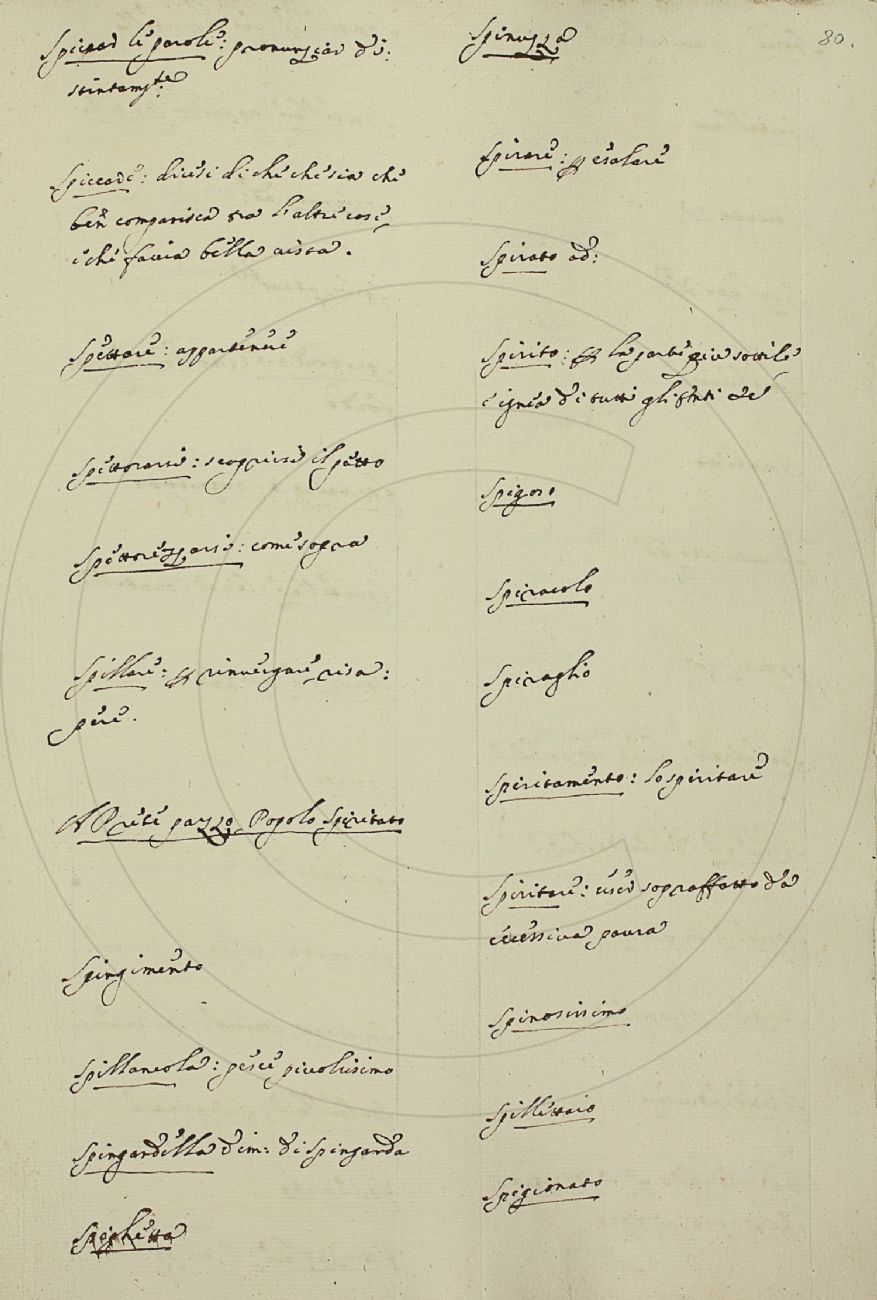 Spiccar le parole: pronunziar di:
stintamte:
Spiccare: dicesi di che che sia che
ben comparisca tra l'altre cose
e che faccia bella vista.
Spettare: appartenere
Spettorarsi: scoprirsi il petto
Spettorezzarsi: come sopra
Spillare: rinvergare, risa:
pere.
A Prete pazzo Popolo Spiritato
Spingimento
Spillancola: pesce piccolissimo
Spingardella dim: di Spingarda
Spighetta
80.
Spinuzza
Spirare: esalare
Spirato ad:
Spirito: la parte più sottile
e ignea di tutti gli
Spigoso
Spiracolo
Spiraglio
Spiritamento: lo spiritare
Spiritare: esser sopraffatto da
eccessiva paura
Spinosissimo
Spillettaio
Spigionato